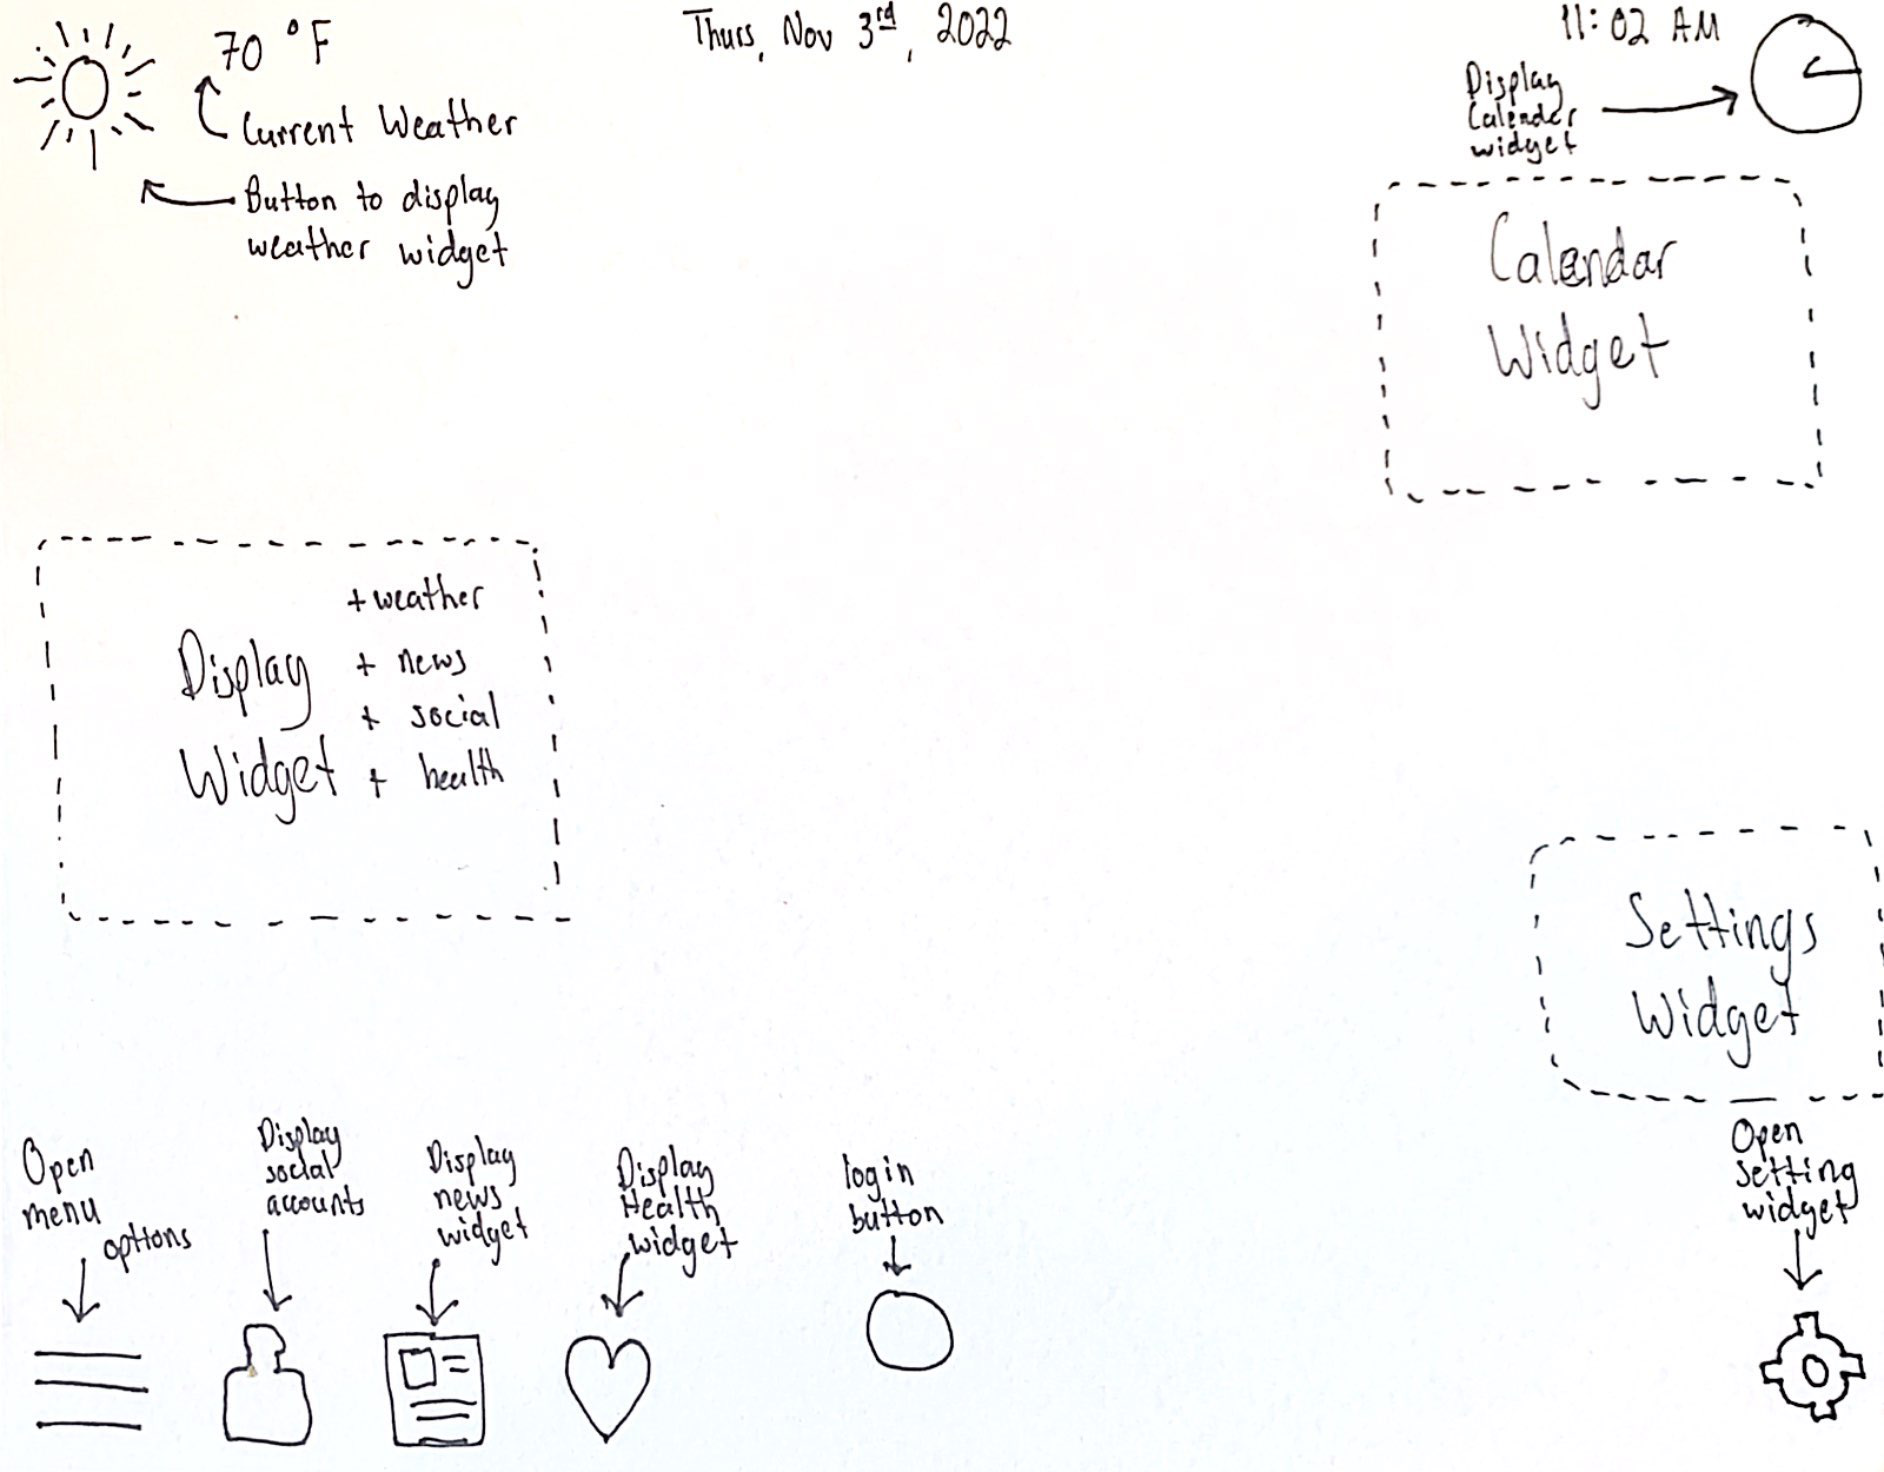 70 °F
Current Weather
Button to display
weather widget
Thurs, Nov 3rd, 2022
11:02 AM
Display
Calender
widget
Calendar
Widget
+ weather
Display + news
+ social
Widget + health
Settings
Widget
Open
menu
options
Display
social
accounts
Display
news
widget
Display
Health
widget
login
button
Open
setting
widget